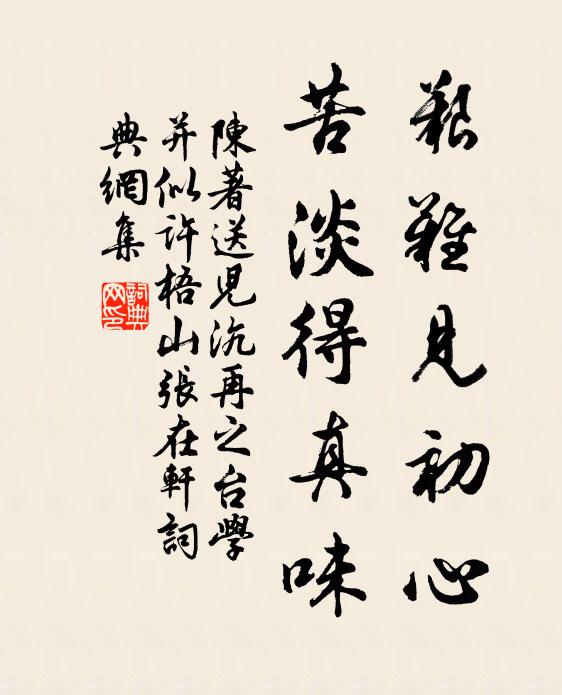 艱難見初心
苦淡得真味
陳著送兒沆再之台學
并似許梧山張在軒詞
典網集
詞典
网印